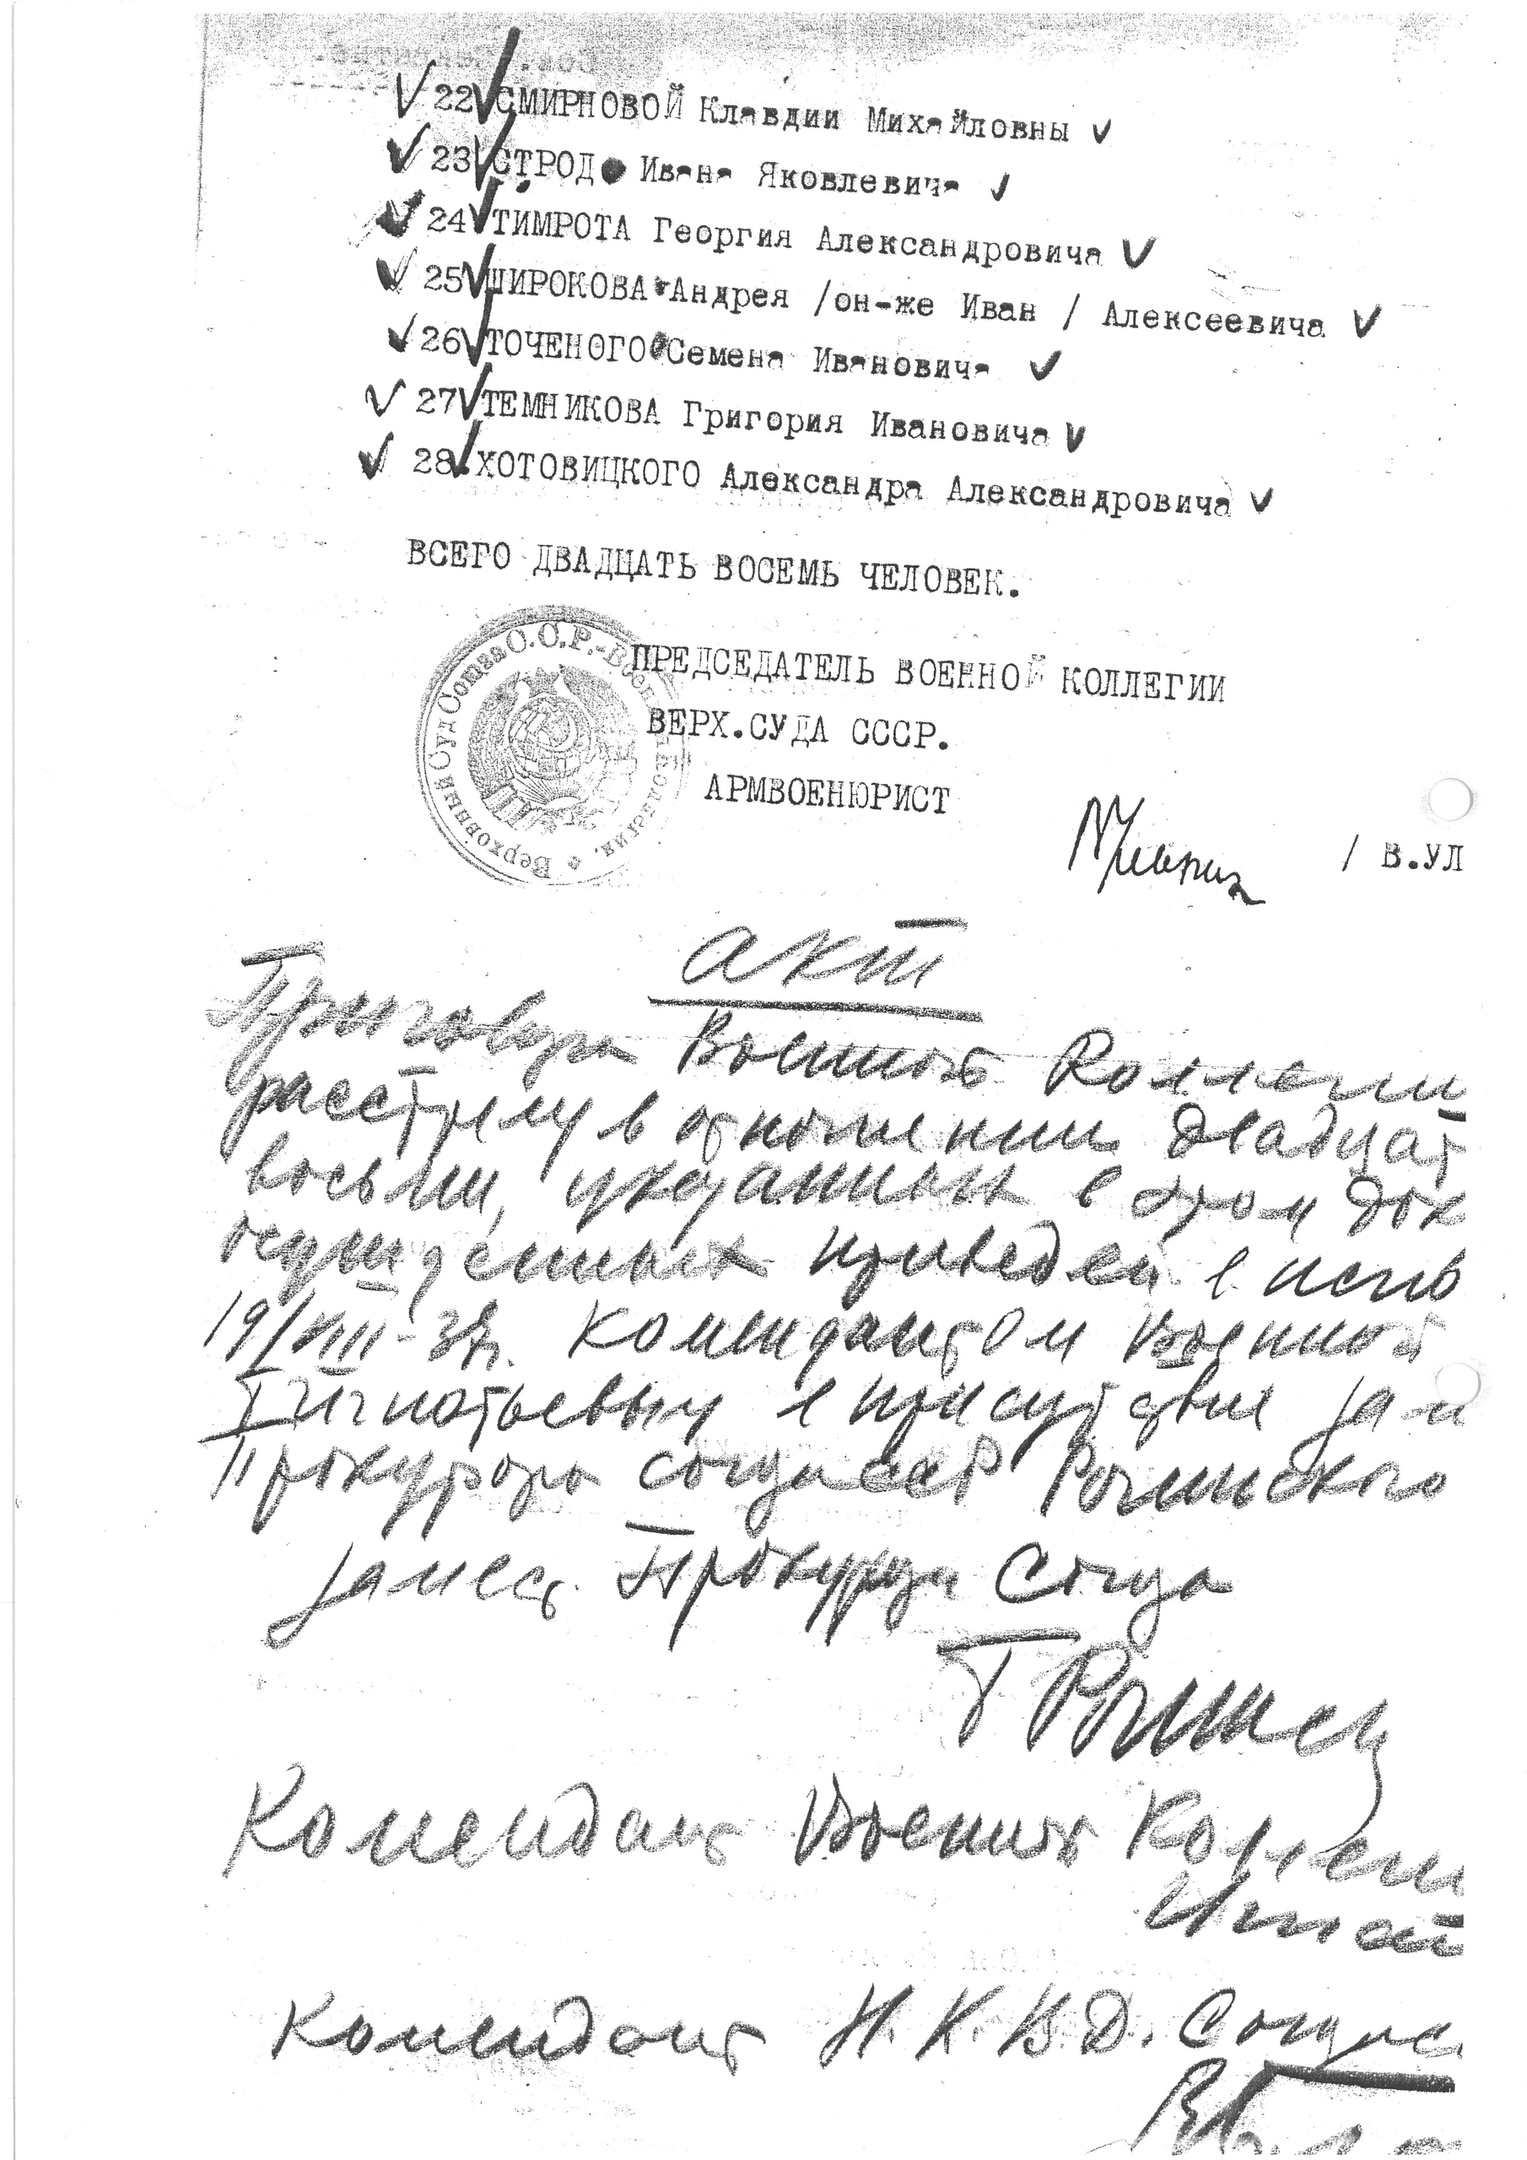 22 СМИРНОВОЙ Клавдии Михайловны
23 СТРОД Ивана Яковлевича
24 ТИМРОТА Георгия Александровича
25 ШИРОКОВА Андрея /он-же Иван / Алексеевича
26 ТОЧЕНОГО Семена Ивановича
27 ТЕМНИКОВА Григория Ивановича
28. ХОТОВИЦКОГО Александра Александровича
ВСЕГО ДВАДЦАТЬ ВОСЕМЬ ЧЕЛОВЕК.
Верховный Суд Союза С.С.Р.-Военная Коллегия.
ПРЕДСЕДАТЕЛЬ ВОЕННОЙ КОЛЛЕГИИ
ВЕРХ.СУДА СССР.
АРМВОЕНЮРИСТ
/ В.УЛ
акт
Приговора Военной Коллегии
расстрелу в отношении двадцат
восьми, указанных в этом док
осужденных приведен в испо
19/VIII-37г. комендантом военной
т Игнатьевым в присутствии зам
Прокурора союза ССР Рогинского
замест. Прокурора Союза
Г Рогинск
Комендант Военной Коллеги
Игнат
Комендант Н.К.В.Д. Союза